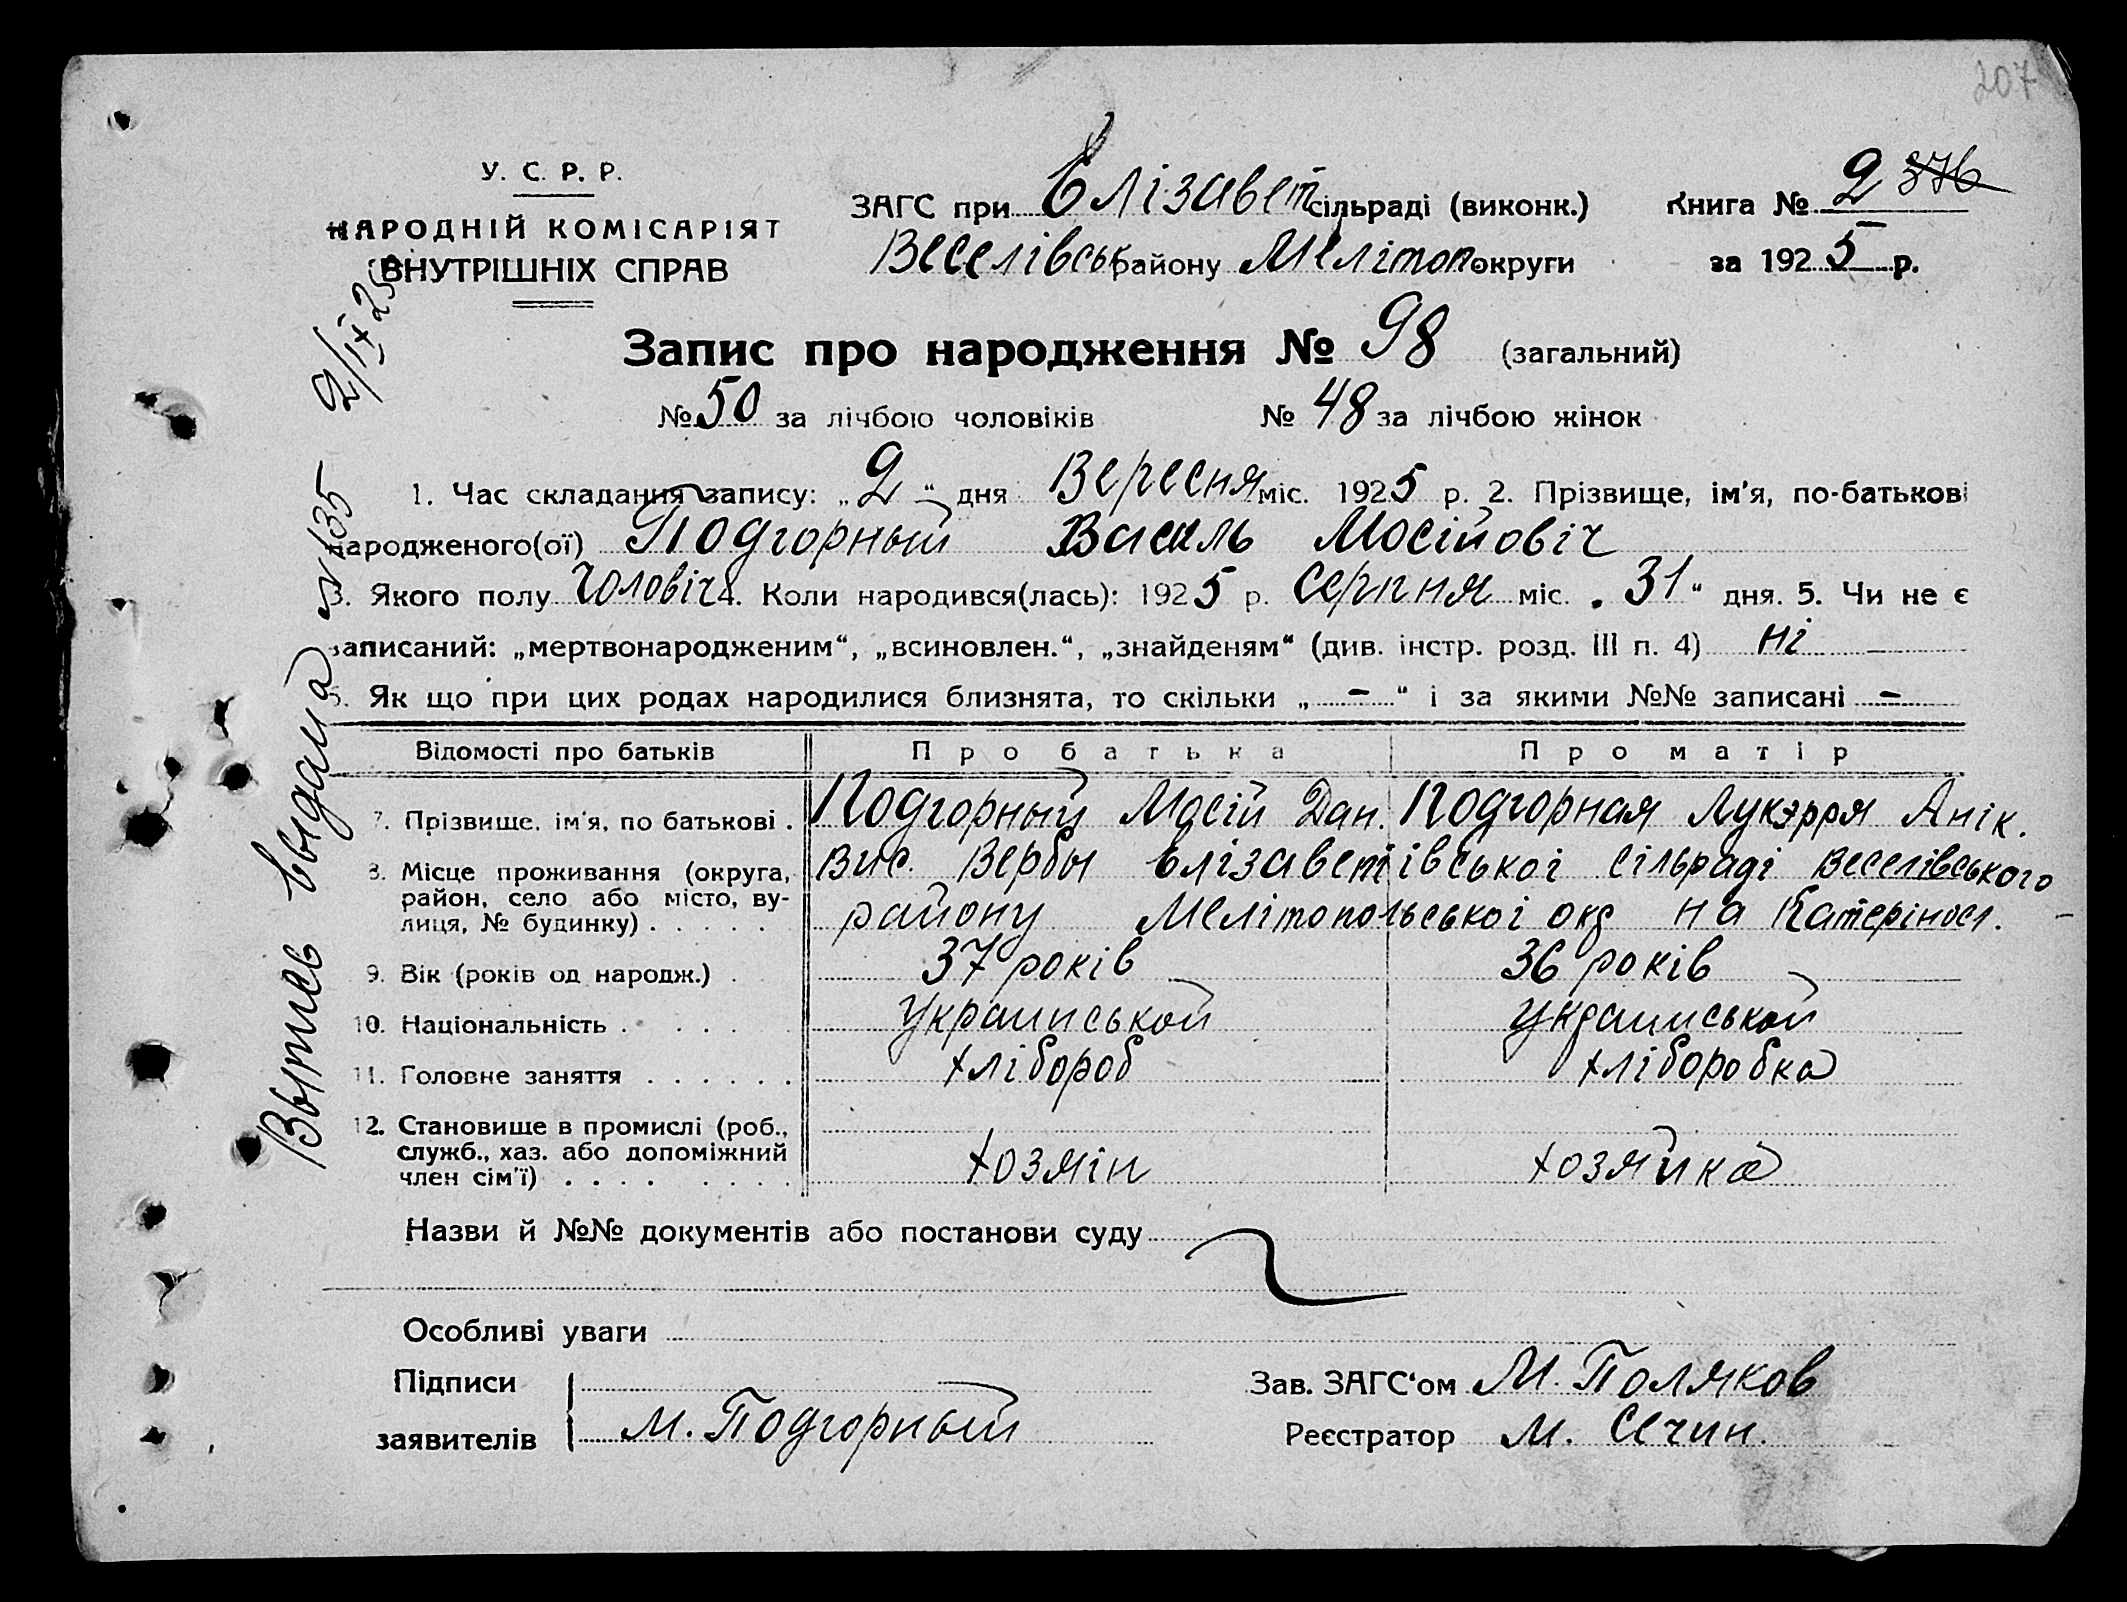 207
У. С. Р. Р.
НАРОДНІЙ КОМІСАРІЯТ
ВНУТРІШНІХ СПРАВ
ЗАГС при Елізавет сільраді (виконк.) Книга № 2 376
Веселівськ району Мелітоп округи за 1925 р.
Запис про народження № 98 (загальний)
№ 50 за лічбою чоловіків № 48 за лічбою жінок
1. Час складання запису: „2“ дня Вересня міс. 1925 р. 2. Прізвище, ім'я, по-батькові
народженого(ої) Подгорный Василь Мосійовіч
3. Якого полу Чоловіч 4. Коли народився(лась): 1925 р. Серпня міс. „31“ дня. 5. Чи не є
записаний: „мертвонародженим“, „всиновлен.“, „знайденям“ (див. інстр. розд. III п. 4) ні
6. Як що при цих родах народилися близнята, то скільки „ - “ і за якими №№ записані -
Відомості про батьків Про батька Про матір
7. Прізвище, ім'я, по батькові . Подгорный Мосій Дан. Подгорная Лукэрря Анік.
8. Місце проживання (округа, район, село або місто, вулиця, № будинку) . . . . .
вис. Вербы Елізаветівської сільраді Веселівського
району Мелітопольської окр на Катеріносл.
9. Вік (років од народж.) . 37 років 36 років
10. Національність . . . . . Украинськой Украинськой
11. Головне заняття . . . . . . хлібороб хліборобка
12. Становище в промислі (роб., служб., хаз. або допоміжний член сім'ї) . . . . . . . .
хозяін хозяйка
Назви й №№ документів або постанови суду
Особливі уваги
Підписи
заявителів М. Подгорный
Зав. ЗАГС'ом М. Поляков
Реєстратор М. Сечин.
Выпись выдана № 135 2/IX 25